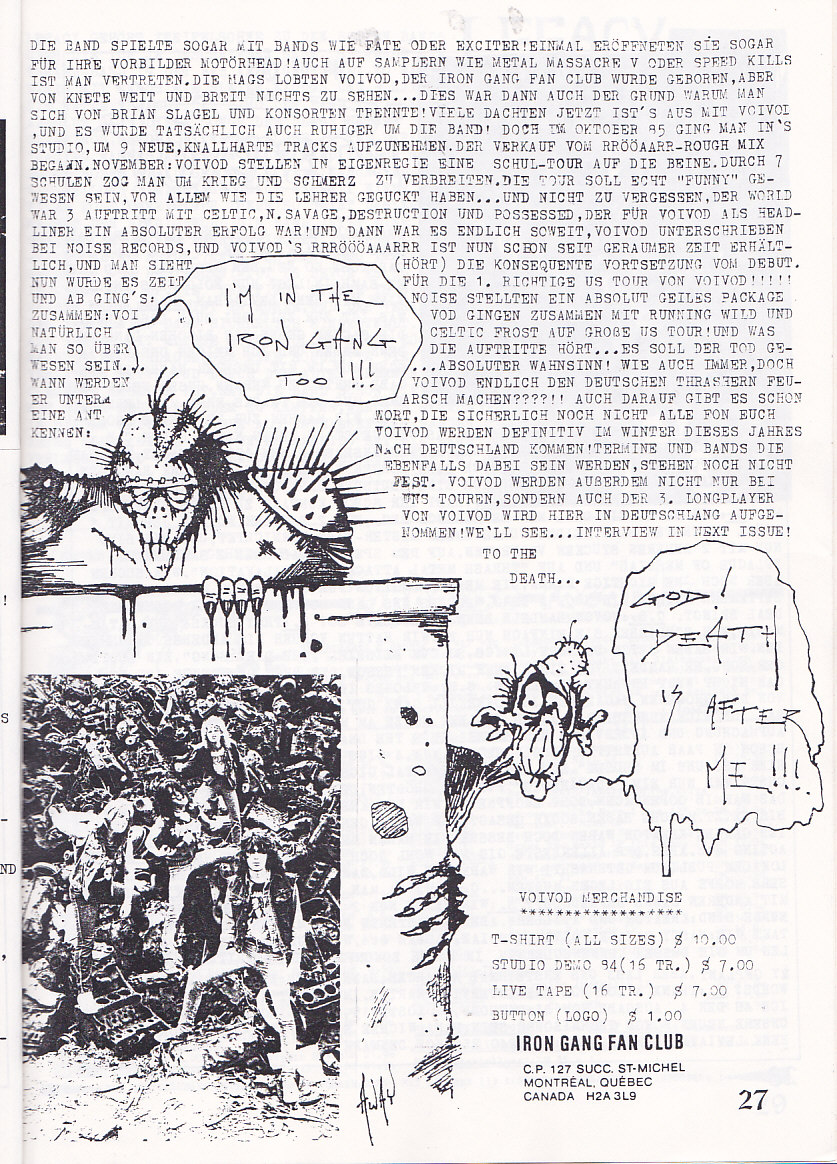 DIE BAND SPIELTE SOGAR MIT BANDS WIE FATE ODER EXCITER!EINMAL ERÖFFNETEN SIE SOGAR
FÜR IHRE VORBILDER MOTÖRHEAD!AUCH AUF SAMPLERN WIE METAL MASSACRE V ODER SPEED KILLS
IST MAN VERTRETEN.DIE MAGS LOBTEN VOIVOD,DER IRON GANG FAN CLUB WURDE GEBOREN,ABER
VON KNETE WEIT UND BREIT NICHTS ZU SEHEN...DIES WAR DANN AUCH DER GRUND WARUM MAN
SICH VON BRIAN SLAGEL UND KONSORTEN TRENNTE!VIELE DACHTEN JETZT IST'S AUS MIT VOIVOD
,UND ES WURDE TATSÄCHLICH AUCH RUHIGER UM DIE BAND! DOCH IM OKTOBER 85 GING MAN IN'S
STUDIO,UM 9 NEUE,KNALLHARTE TRACKS AUFZUNEHMEN.DER VERKAUF VOM RRÖÖAARR-ROUGH MIX
BEGANN.NOVEMBER:VOIVOD STELLEN IN EIGENREGIE EINE SCHUL-TOUR AUF DIE BEINE.DURCH 7
SCHULEN ZOG MAN UM KRIEG UND SCHMERZ ZU VERBREITEN.DIE TOUR SOLL ECHT "FUNNY" GE-
WESEN SEIN,VOR ALLEM WIE DIE LEHRER GEGUCKT HABEN...UND NICHT ZU VERGESSEN,DER WORLD
WAR 3 AUFTRITT MIT CELTIC,N.SAVAGE,DESTRUCTION UND POSSESSED,DER FÜR VOIVOD ALS HEAD-
LINER EIN ABSOLUTER ERFOLG WAR!UND DANN WAR ES ENDLICH SOWEIT,VOIVOD UNTERSCHRIEBEN
BEI NOISE RECORDS,UND VOIVOD'S RRRÖÖÖAAARRR IST NUN SCHON SEIT GERAUMER ZEIT ERHÄLT-
LICH,UND MAN SIEHT (HÖRT) DIE KONSEQUENTE VORTSETZUNG VOM DEBUT.
NUN WURDE ES ZEIT FÜR DIE 1. RICHTIGE US TOUR VON VOIVOD!!!!!
UND AB GING'S: NOISE STELLTEN EIN ABSOLUT GEILES PACKAGE
ZUSAMMEN:VOI VOD GINGEN ZUSAMMEN MIT RUNNING WILD UND
NATÜRLICH CELTIC FROST AUF GROßE US TOUR!UND WAS
MAN SO ÜBER DIE AUFTRITTE HÖRT...ES SOLL DER TOD GE-
WESEN SEIN... ...ABSOLUTER WAHNSINN! WIE AUCH IMMER,DOCH
WANN WERDEN VOIVOD ENDLICH DEN DEUTSCHEN THRASHERN FEU-
ER UNTERM ARSCH MACHEN????!! AUCH DARAUF GIBT ES SCHON
EINE ANT WORT,DIE SICHERLICH NOCH NICHT ALLE FON EUCH
KENNEN: VOIVOD WERDEN DEFINITIV IM WINTER DIESES JAHRES
NACH DEUTSCHLAND KOMMEN!TERMINE UND BANDS DIE
EBENFALLS DABEI SEIN WERDEN,STEHEN NOCH NICHT
FEST. VOIVOD WERDEN AUßERDEM NICHT NUR BEI
UNS TOUREN,SONDERN AUCH DER 3. LONGPLAYER
VON VOIVOD WIRD HIER IN DEUTSCHLANG AUFGE-
NOMMEN!WE'LL SEE...INTERVIEW IN NEXT ISSUE!
TO THE
DEATH...
I'M IN THE
IRON GANG
TOO !!!
GOD!
DEATH
IS AFTER
ME!!!.
VOIVOD MERCHANDISE
*******************
T-SHIRT (ALL SIZES) $ 10.00
STUDIO DEMO 84(16 TR.) $ 7.00
LIVE TAPE (16 TR.) $ 7.00
BUTTON (LOGO) $ 1.00
IRON GANG FAN CLUB
C.P. 127 SUCC. ST-MICHEL
MONTRÉAL, QUÉBEC
CANADA H2A 3L9
AWAY
27